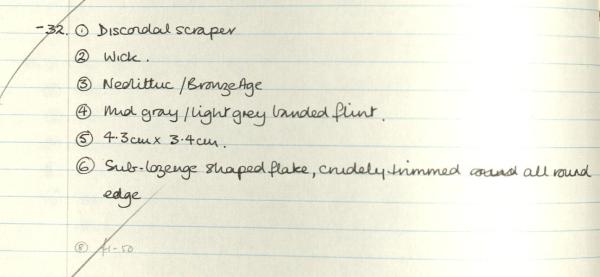 -32. ① Discoidal scraper
② Wick.
③ Neolithic / Bronze Age
④ Mid gray / light grey banded flint.
⑤ 4.3cm x 3.4cm.
⑥ Sub-lozenge shaped flake, crudely trimmed all round
edge
⑧ £1-50